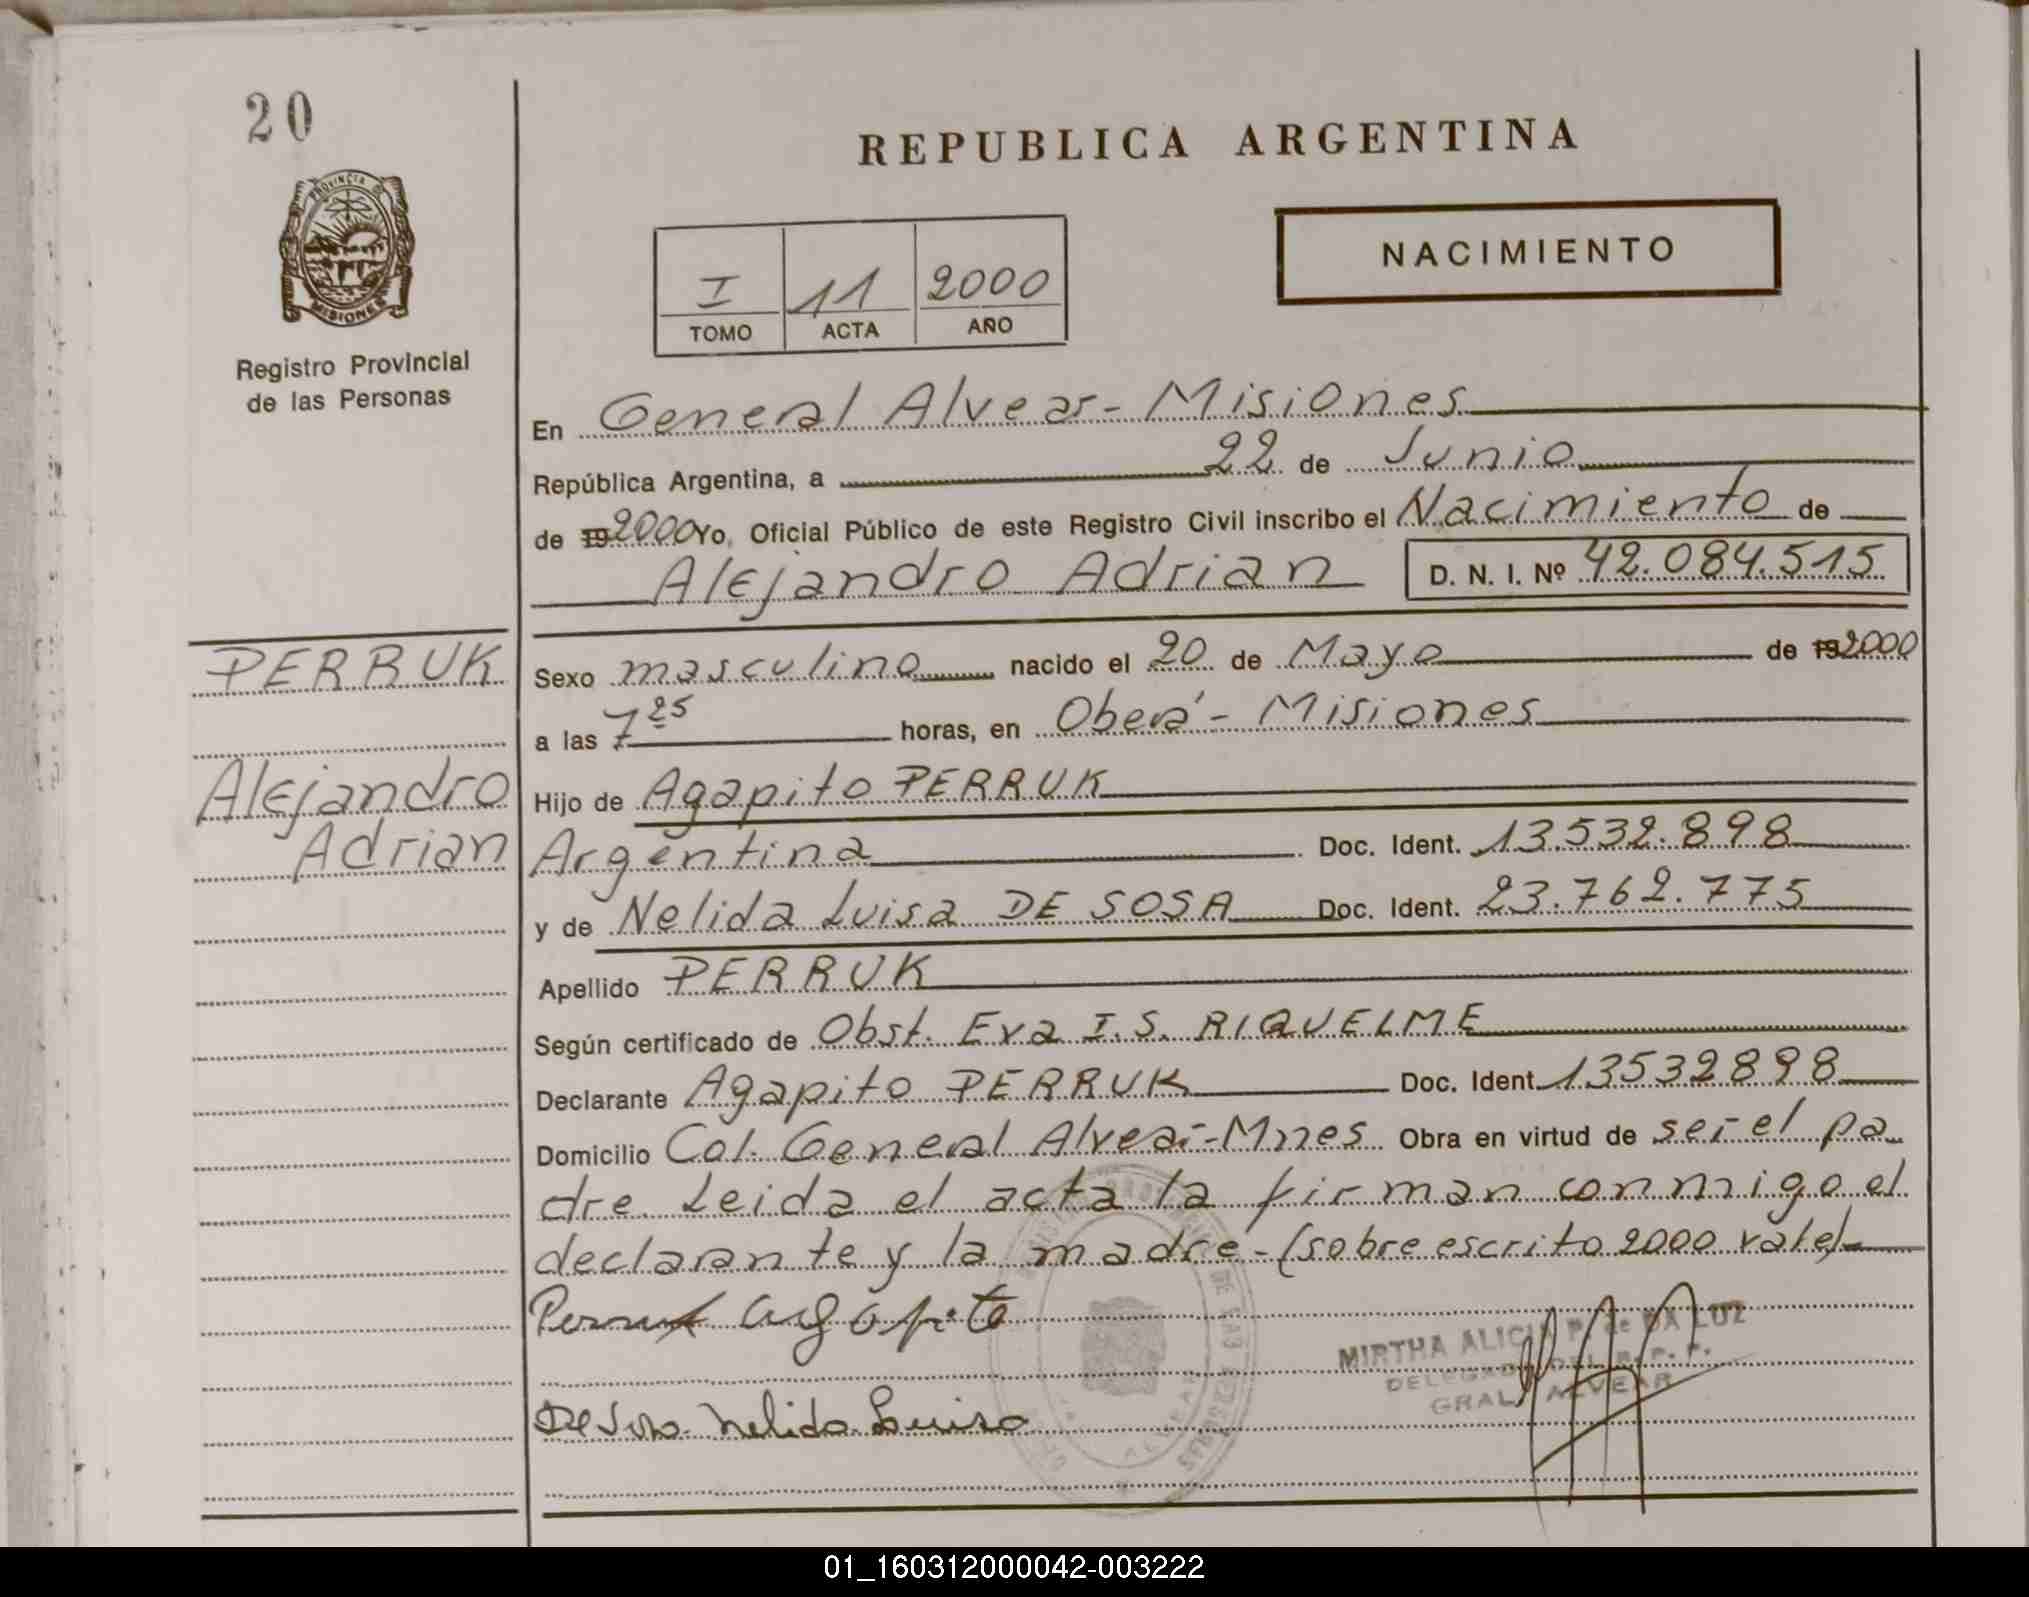 20
PROVINCIA DE
MISIONES
Registro Provincial
de las Personas
REPUBLICA ARGENTINA
NACIMIENTO
I 11 2000
TOMO ACTA AÑO
En General Alvear - Misiones
República Argentina, a 22 de Junio
de 19 2000 Yo, Oficial Público de este Registro Civil inscribo el Nacimiento de
Alejandro Adrian D. N. I. Nº 42.084.515
PERRUK
Alejandro
Adrian
Sexo masculino nacido el 20 de Mayo de 19 2000
a las 7 25 horas, en Oberá - Misiones
Hijo de Agapito PERRUK
Argentina Doc. Ident. 13.532.898
y de Nelida Luisa DE SOSA Doc. Ident. 23.762.775
Apellido PERRUK
Según certificado de Obst. Eva I. S. RIQUELME
Declarante Agapito PERRUK Doc. Ident. 13532898
Domicilio Col. General Alvear - Mnes Obra en virtud de ser el pa
dre. Leida el acta la firman conmigo el
declarante y la madre - (sobre escrito 2000 vale)
Perruk Agapito
MIRTHA ALICIA P. de DA LUZ
DELEGADO DEL R. P. P.
GRAL. ALVEAR
De Sosa Nelida Luisa
01_160312000042-003222